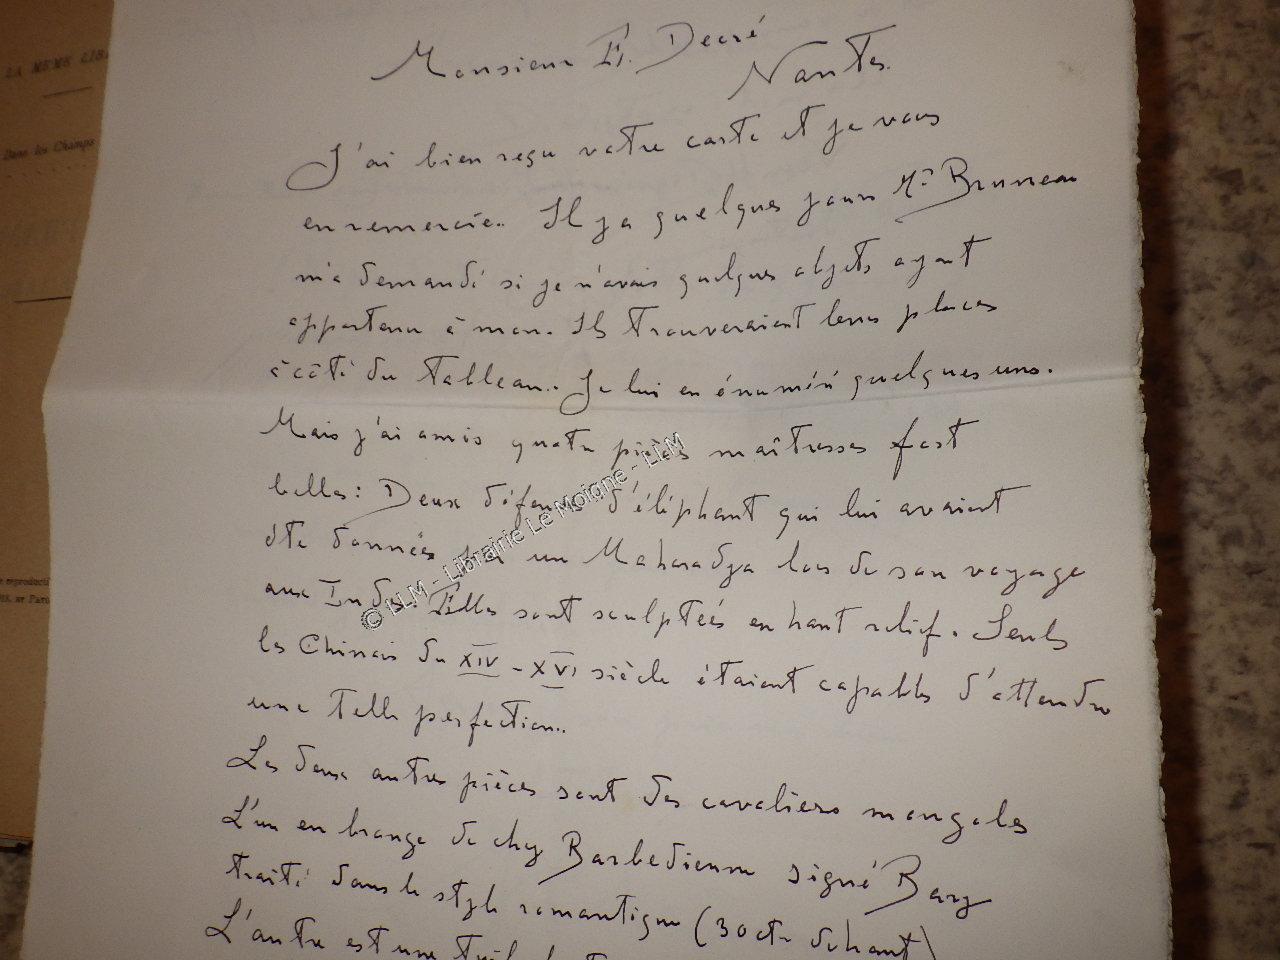 LA MÊME LIB
Dans les Champs
Monsieur E. Decré
Nantes.
J'ai bien reçu votre carte et je vous
en remercie. Il y a quelques jours Mr Bruneau
m'a demandé si je n'avais quelques objets ayant
appartenu à mon. Ils trouveraient leurs places
à côté du tableau. Je lui en énuméré quelques uns.
Mais j'ai omis quatre pièces maîtresses fort
belles: Deux défenses d'éléphant qui lui avaient
été données par un Maharadja lors de son voyage
aux Indes. Elles sont sculptées en haut relief. Seuls
les Chinois du XIV - XVI siècle étaient capables d'attendre
une telle perfection.
Les deux autres pièces sont des cavaliers mongoles
L'un en bronze de chez Barbedienne signé Bary
traité dans le style romantique (30 ctr de haut)
L'autre est une
© LLM - Librairie Le Moigne - LLM
e reproducti